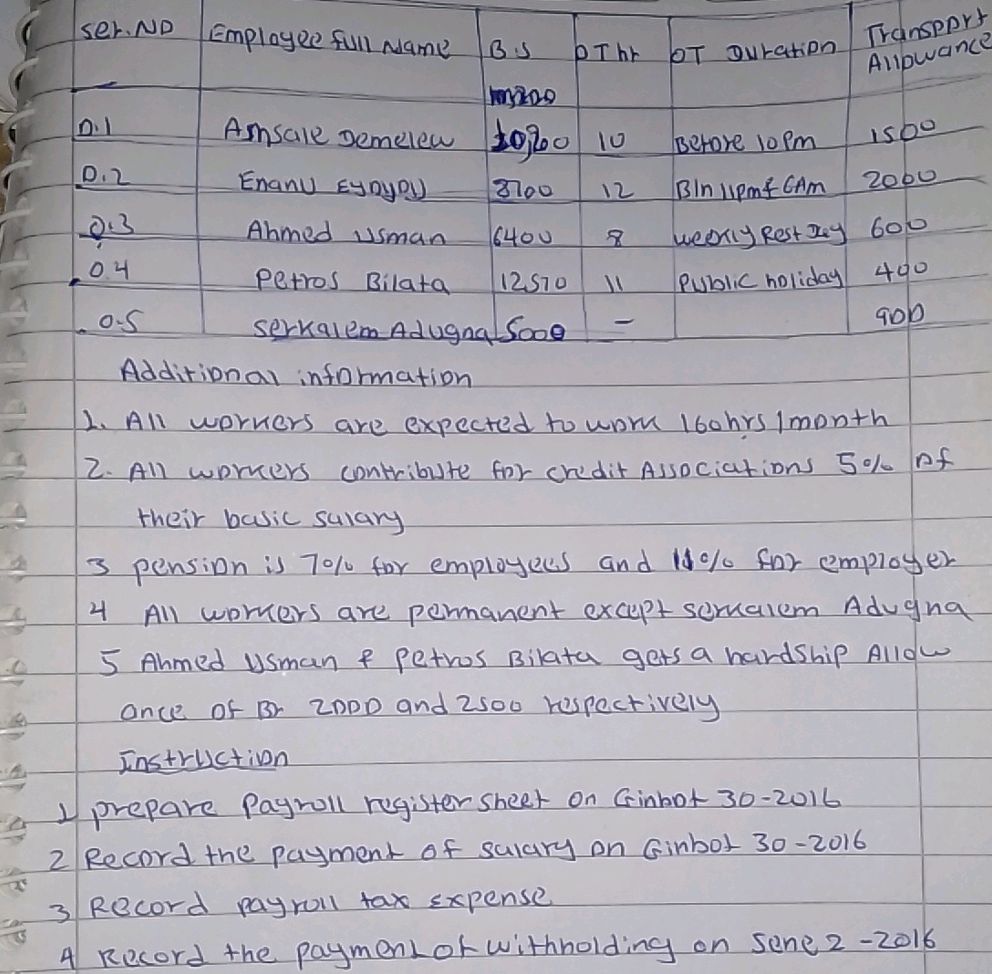 Ser.No Employee full Name B.S OT hr OT Duration Transport Allowance
0.1 Amsale Demelew 10,200 10 Before 10 Pm 1500
0.2 Enanu Eyayeu 8700 12 B/n 11pm & 6Am 2000
0.3 Ahmed Usman 6400 8 weekly Rest Day 600
0.4 Petros Bilata 12570 11 Public holiday 400
0.5 serkalem Adugna 5000 - 900
Additional information
1. All workers are expected to work 160hrs/month
2. All workers contribute for credit Associations 5% of
their basic salary
3 pension is 7% for employees and 11% for employer
4 All workers are permanent except serkalem Adugna
5 Ahmed Usman & Petros Bilata gets a hardship Allow
ance of Br 2000 and 2500 respectively
Instruction
1 prepare Payroll register sheet on Ginbot 30-2016
2 Record the payment of salary on Ginbot 30-2016
3 Record payroll tax Expense
4 Record the payment of withholding on Sene 2-2016